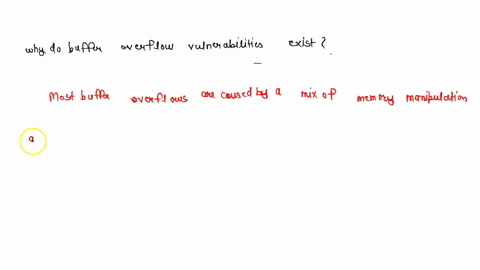 why do buffer overflow vulnerabilities exist ?
Most buffer overflows are caused by a mix of memory manipulation
a